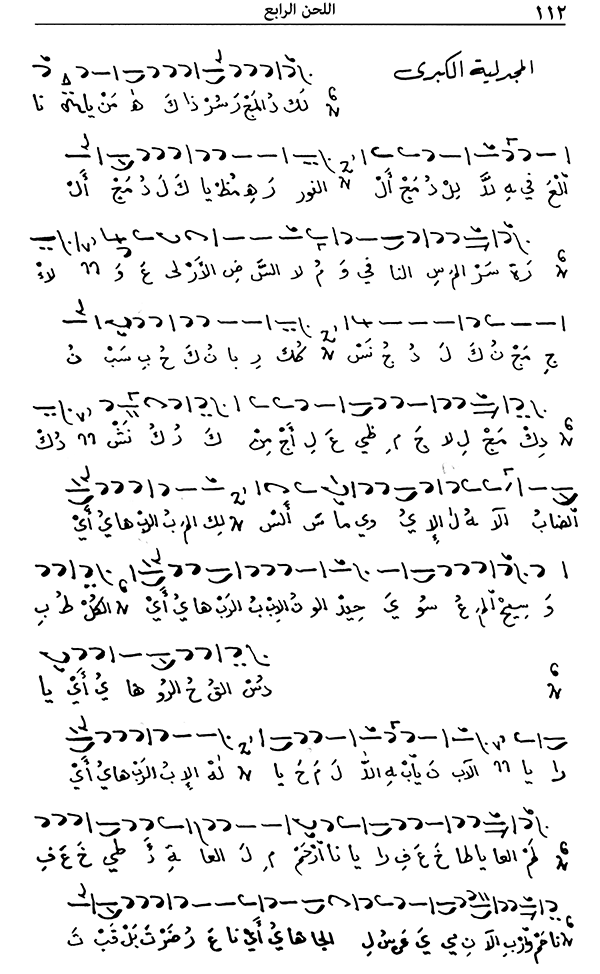 ١١٢ اللحن الرابع
المجدلية الكبرى
لَكَ دُ المَجْ رَ سُرْ ذا كَ هٰ مَنْ يا نا
أَلْعَ في هِ لاَّ لِلْ دُ مَجْ أَلْ النور رَ هِ مُظْ يا كَ لَ دُ مَجْ أَلْ
رَة سَرْ المَ سِ النا في وَ مُ لا السَّ ضِ الأَرْ لى عَ وَ لاءْ
حِ مَجْ نُ كَ لَ دُ جُ نَسْ كُكَ رِ با نُ كَ حُ بِ سَبْ نُ
دِكْ مَجْ لِ لا جَ مِ ظي عَ لِ أَجْ مِنْ كَ رُ كُ نَشْ دُكْ
الضابُ الآ هُ لٰ الإِ يُ وي ما سَ أَلْسْ لِك الم رَب الرَبْ ها يُ أَيْ
وَ سيحْ الْمَ عُ سو يَ حيدْ الو نُ الإِبْ بُ الرَبْ ها يُ أَيْ الكُلْ طُ بِ
دُسْ القُ حُ الرو ها يُ أَيْ يا
را يا الآب نَ يَابْ هِ اللٰ لَ مَ حَ يا لَهْ الإِ بُ الرَبْ ها يُ أَيْ
لَمْ العا يا طا خَ عَ فِ را يا نا أَرْحَمْ مِ لَ العا ةِ ذُ طي خَ عَ فِ
نا حَمْ وَأرْ بِ الآ نِ مي يَ عَنْ سُ لِ الجا ها يُ أَيْ نا عَ رُ ضَرْ تَ بَلْ قَبْ تَ